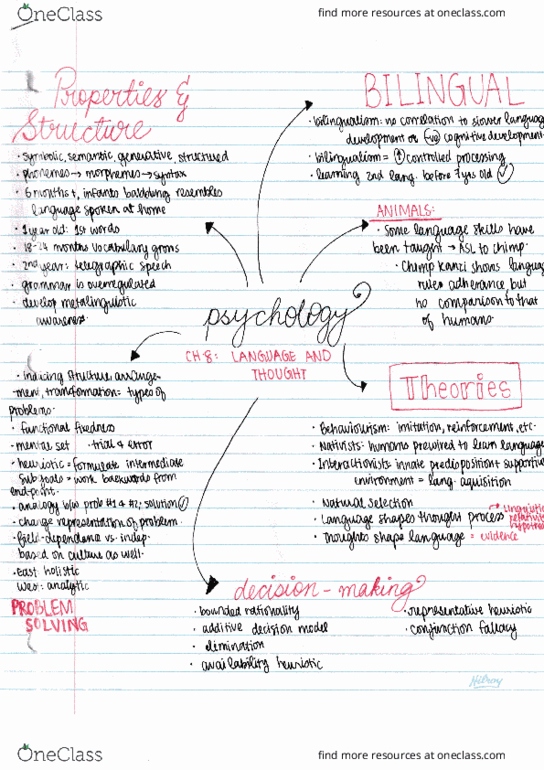 OneClass
find more resources at oneclass.com
Properties &
Structure
• symbolic, semantic, generative, structured
• phonemes → morphemes → syntax
• 6 months +, infants babbling resembles
language spoken at home
• 1 year old: 1st words
• 18-24 months vocabulary grows
• 2nd year: telegraphic speech
• grammar is overregulated
• develop metalinguistic
awareness.
BILINGUAL
• bilingualism: no correlation to slower language
development or (-ve) cognitive development
• bilingualism = (+) controlled processing
• learning 2nd lang. before 7yrs old ✓
ANIMALS:
• Some language skills have
been taught → ASL to chimp.
• Chimp Kanzi shows language
rules adherance, but
no comparison to that
of humans.
psychology
CH 8: LANGUAGE AND
THOUGHT
• inducing structure, arrange-
ment, transformation = types of
problems.
• functional fixedness
• mental set • trial & error
• heuristic = formulate intermediate
subgoals = work backwards from
end-point.
• analogy b/w prob #1 & #2; solution ✓
• change representation of problem.
• field-dependence vs. indep.
based on culture as well.
• East: holistic
West: analytic
PROBLEM
SOLVING
Theories
• Behaviourism: imitation, reinforcement, etc.
• Nativists: humans prewired to learn language
• Interactionists: innate predisposition + supportive
environment = lang. aquisition
• Natural selection
• Language shapes thought process → linguistic
relativity
hypothesis
• Thoughts shape language = evidence
decision-making
• bounded rationality
• additive decision model
• elimination
• availability heuristic
• representative heuristic
• conjunction fallacy
OneClass
find more resources at oneclass.com